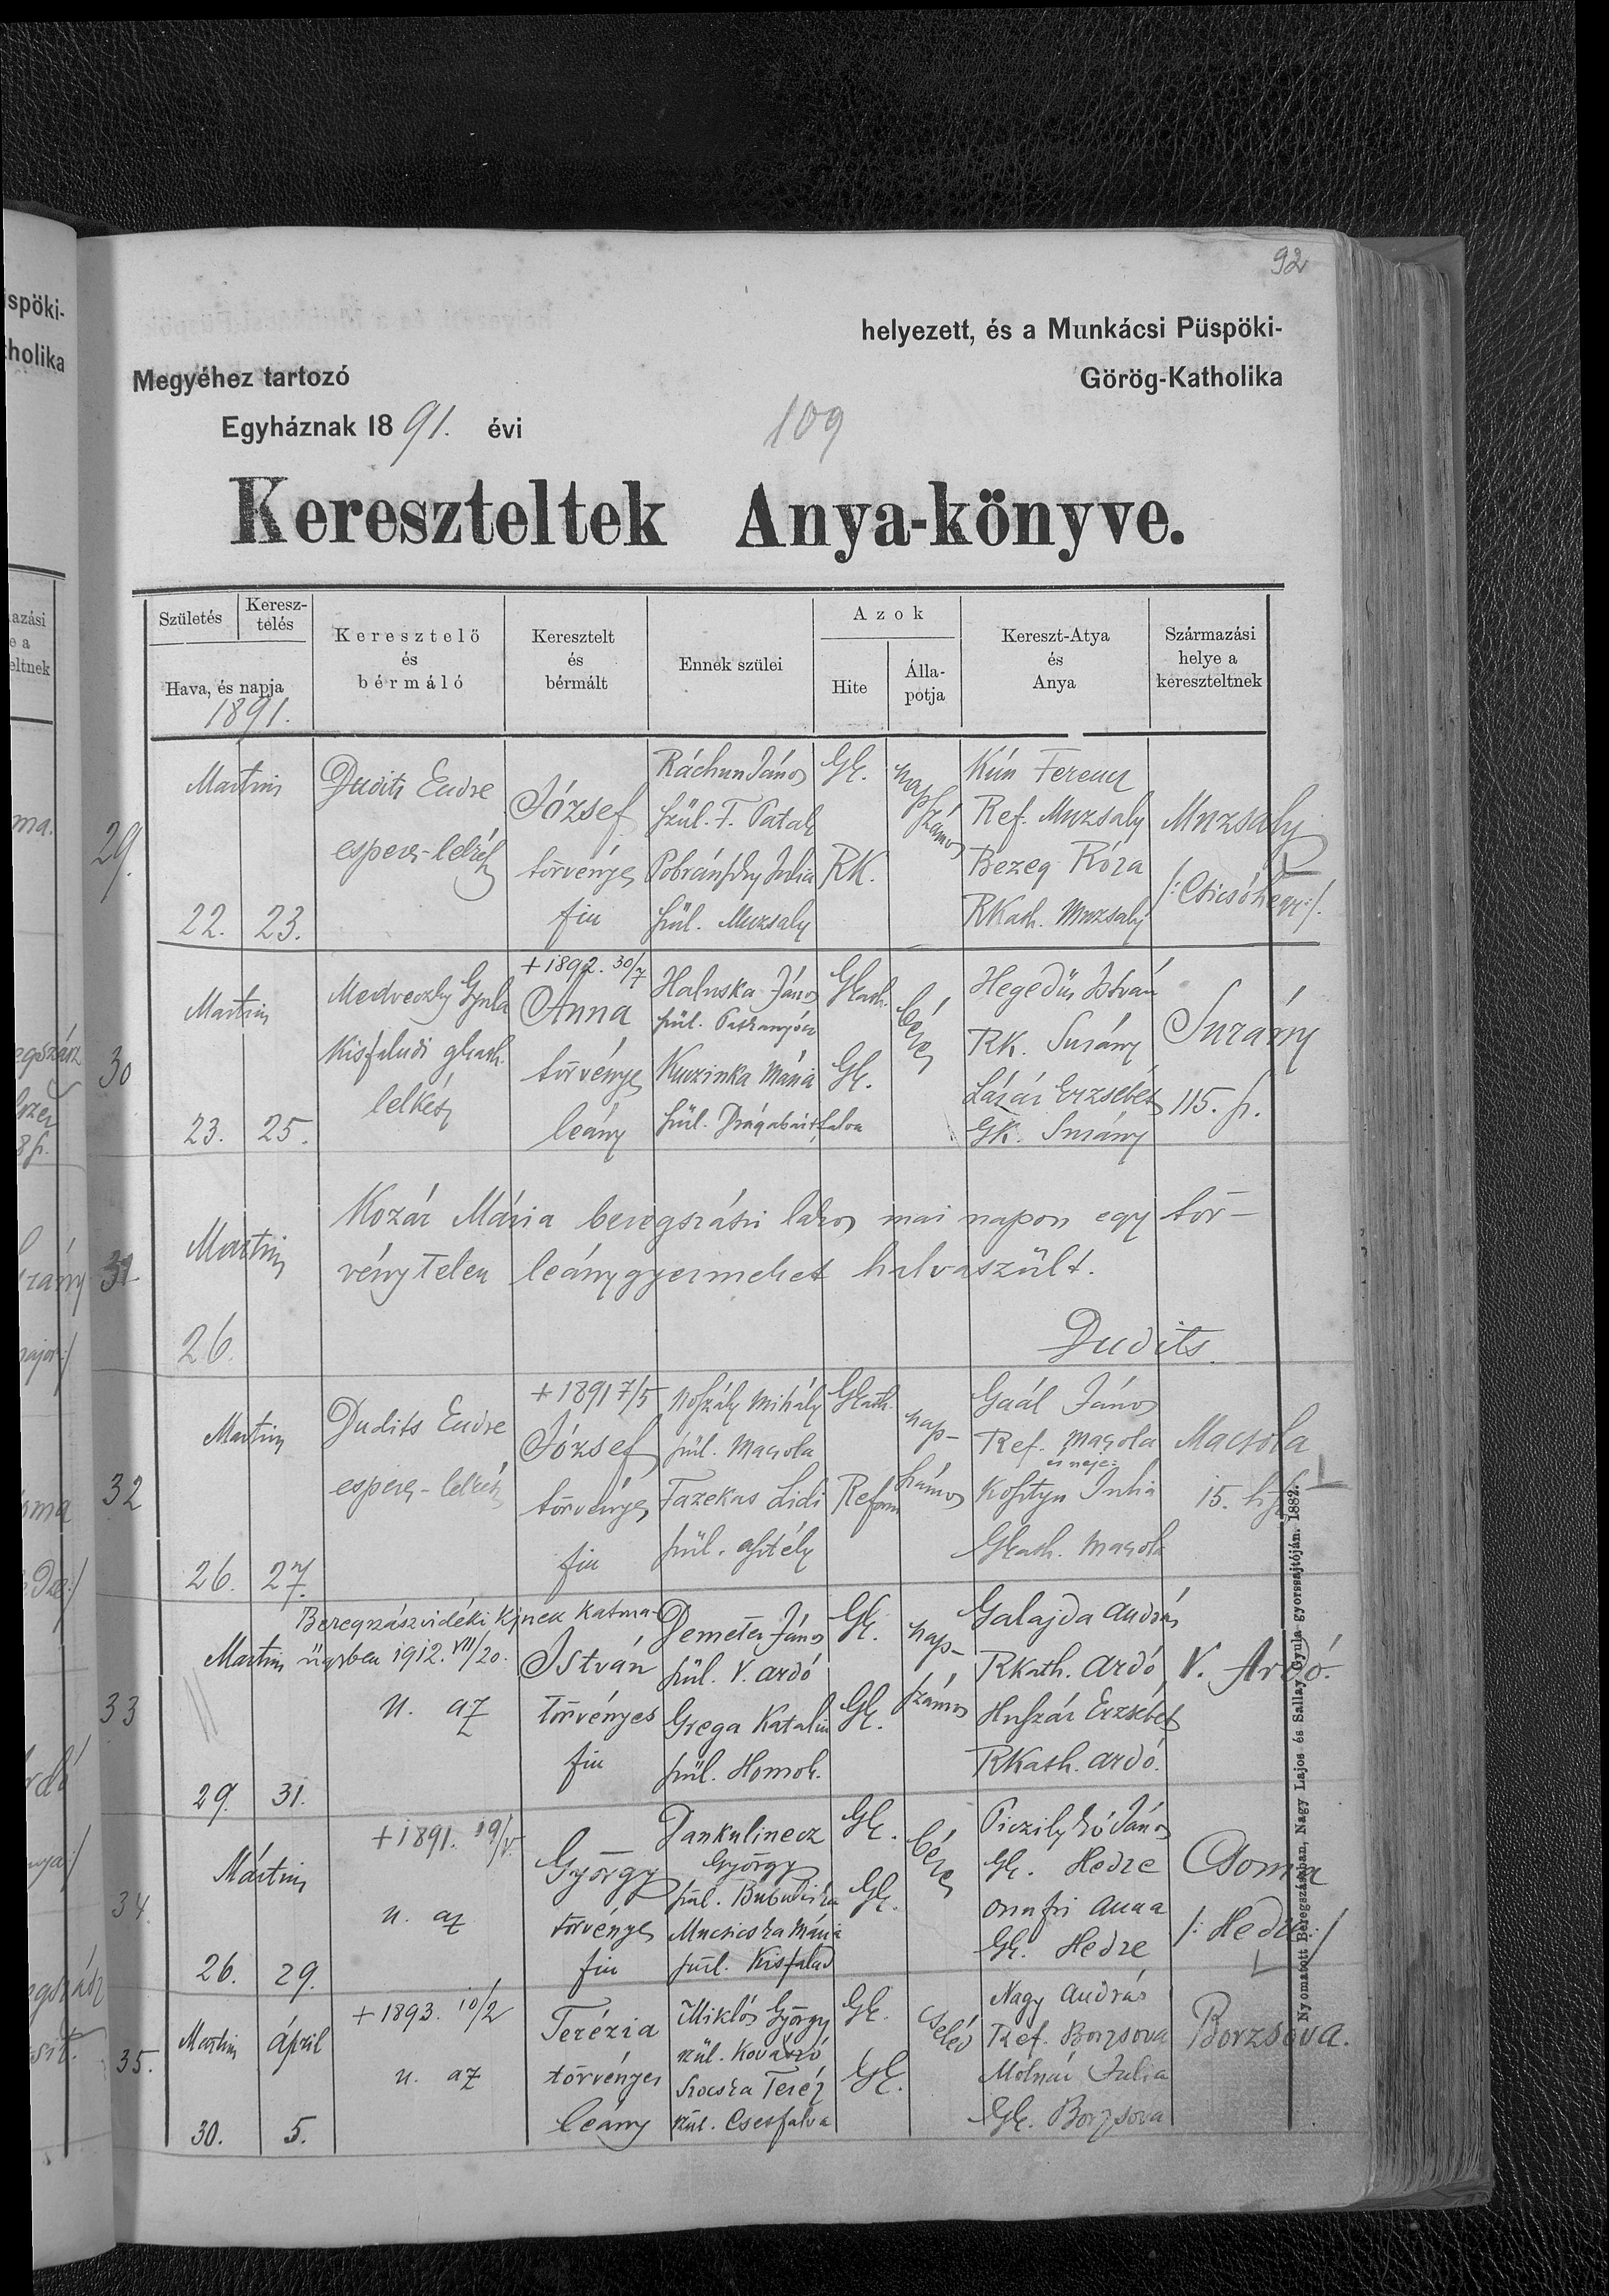 92
helyezett, és a Munkácsi Püspöki-
Megyéhez tartozó
Görög-Katholika
Egyháznak 1891. évi
109
Kereszteltek Anya-könyve.
Születés
Keresz-
telés
Hava, és napja
1891.
Keresztelő
és
bérmáló
Keresztelt
és
bérmált
Ennek szülei
Azok
Hite
Álla-
potja
Kereszt-Atya
és
Anya
Származási
helye a
kereszteltnek
29.
Martius
22. 23.
Dudits Endre
esperes-lelkész
József
törvényes
fiu
János
szül. F. Patak
Julia
szül. Muzsaly
Gk.
RK.
napszámos
Kún Ferencz
Ref. Muzsaly
Bezeg Róza
RKath. Muzsaly
Muzsaly
/: Csicsóhegy :/.
30
Martius
23. 25.
Medveczky Gyula
Kisfaludi gkath.
lelkész
+ 1892. 30/7
Anna
törvényes
leány
Haluska János
szül.
Kuzinka Mária
szül. Drágabártfalva
Gkath.
Gk.
béres
Hegedüs István
RK. Surány
Lázár Erzsébet
GK. Surány
Surány
115. sz.
31.
Martius
26.
Kozár Mária beregszászi lakos mai napon egy tör-
vénytelen leánygyermeket halvaszült.
Dudits
32
Martius
26. 27.
Dudits Endre
esperes-lelkész
+ 1891 7/5
József
törvényes
fiu
Mihály
szül. Macsola
Fazekas Lidi
szül. Asztély
Gkath.
Reform
nap-
számos
Gaál János
Ref. Macsola
és neje:
Kosztyu Julia
Gkath. Macsola
Macsola
15. hsz.
33
Beregszászvidéki kjnek katona-
ügyben 1912. VII/20.
Martius
29. 31.
u. az
István
törvényes
fiu
Demeter János
szül. V. Ardó
Grega Katalin
szül. Homok.
Gk.
Gk.
nap-
számos
Galajda András
RKath. Ardó
Huszár Erzsébet
RKath. Ardó.
V. Ardó.
34.
Mártius
26. 29.
+ 1891. 19/V.
u. az
György
törvényes
fiu
Dankulinecz
György
szül. Bubuliska
Mucsicska Mária
szül. Kisfalud
Gk.
Gk.
béres
János
Gk. Hedre
Onufri Anna
Gk. Hedre
Csoma
/: Hedre :/
35.
Martius
30.
Ápril
5.
+ 1893. 10/2
u. az
Terézia
törvényes
leány
Miklós György
szül. Kovászó
Teréz
szül. Csesfalva
Gk.
Gk.
cseléd
Nagy András
Ref. Borzsova
Molnár Julia
Gk. Borzsova
Borzsova.
Nyomatott Beregszászban, Nagy Lajos és Sallay Gyula gyorssajtóján. 1882.